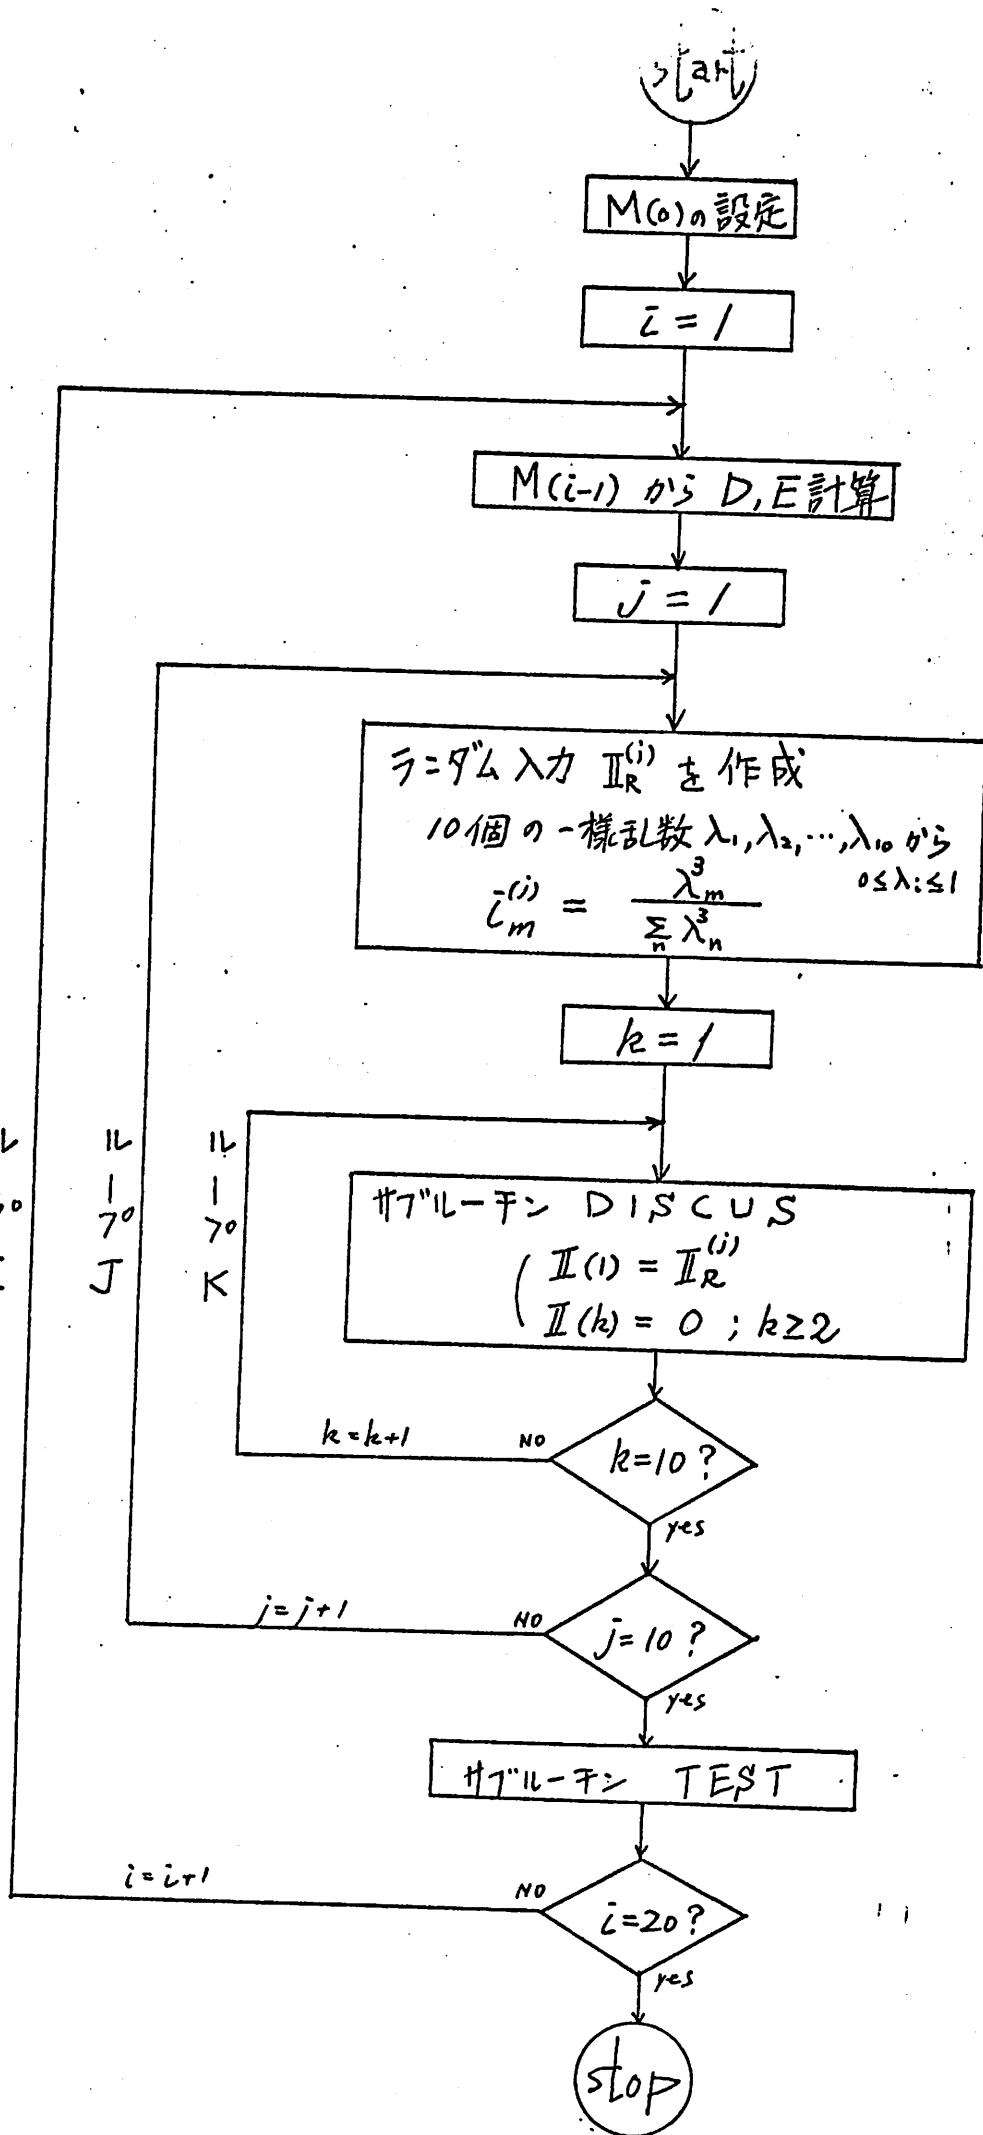 start
M(0)の設定
i = 1
M(i-1) から D, E 計算
j = 1
ランダム入力 𝕀_R^(j) を作成
10個の一様乱数 λ₁, λ₂, ⋯, λ₁₀ から
0≤λi≤1
i_m^(j) = λ_m^3 / Σ_n λ_n^3
k = 1
ループ J
ループ K
サブルーチン DISCUS
𝕀(1) = 𝕀_R^(j)
𝕀(k) = 0 ; k≥2
k=k+1
NO
k=10 ?
yes
j=j+1
NO
j=10 ?
yes
サブルーチン TEST
i=i+1
NO
i=20?
yes
stop